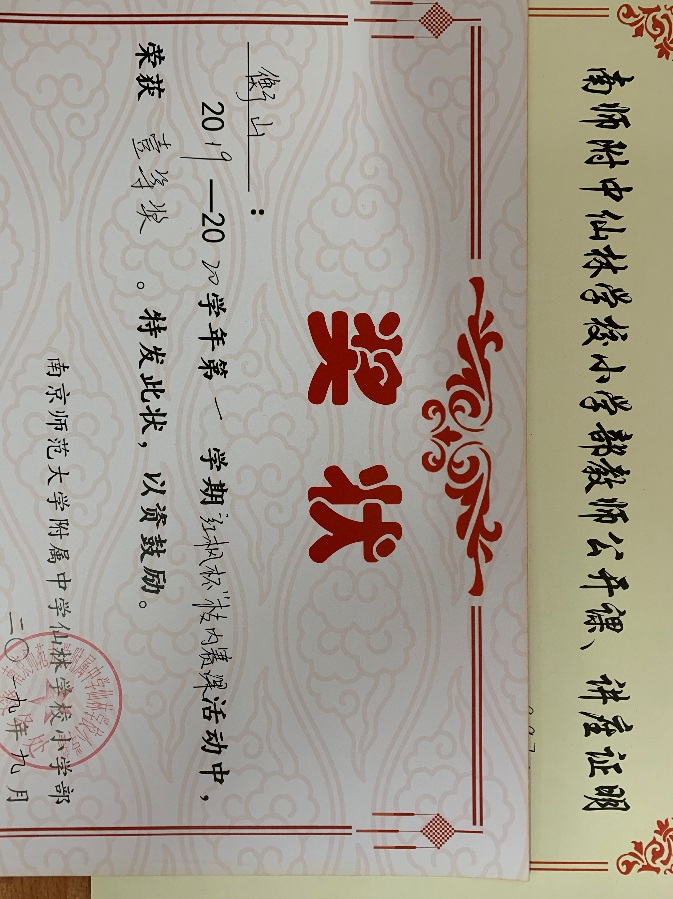 南师附中仙林学校小学部教师公开课、讲座证明
奖状
衡山：
2019—2020学年第一学期"红枫杯"校内赛课活动中，
荣获壹等奖。特发此状，以资鼓励。
南京师范大学附属中学仙林学校小学部
二〇一九年九月